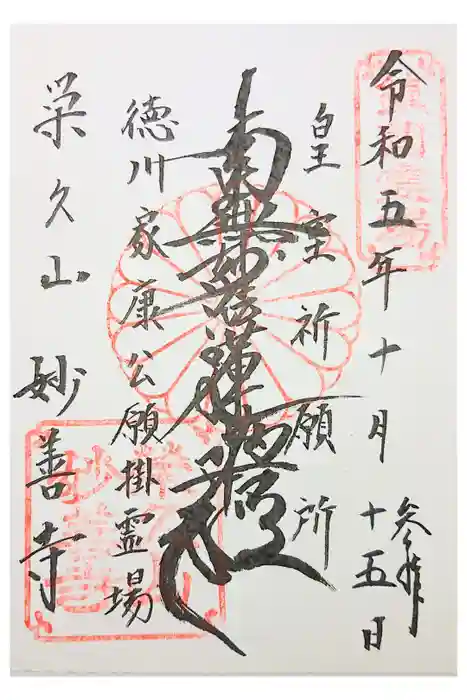 令和五年十月十五日
参拝
皇室祈願所
南無妙法蓮華経
徳川家康公願掛霊場
栄久山 妙善寺